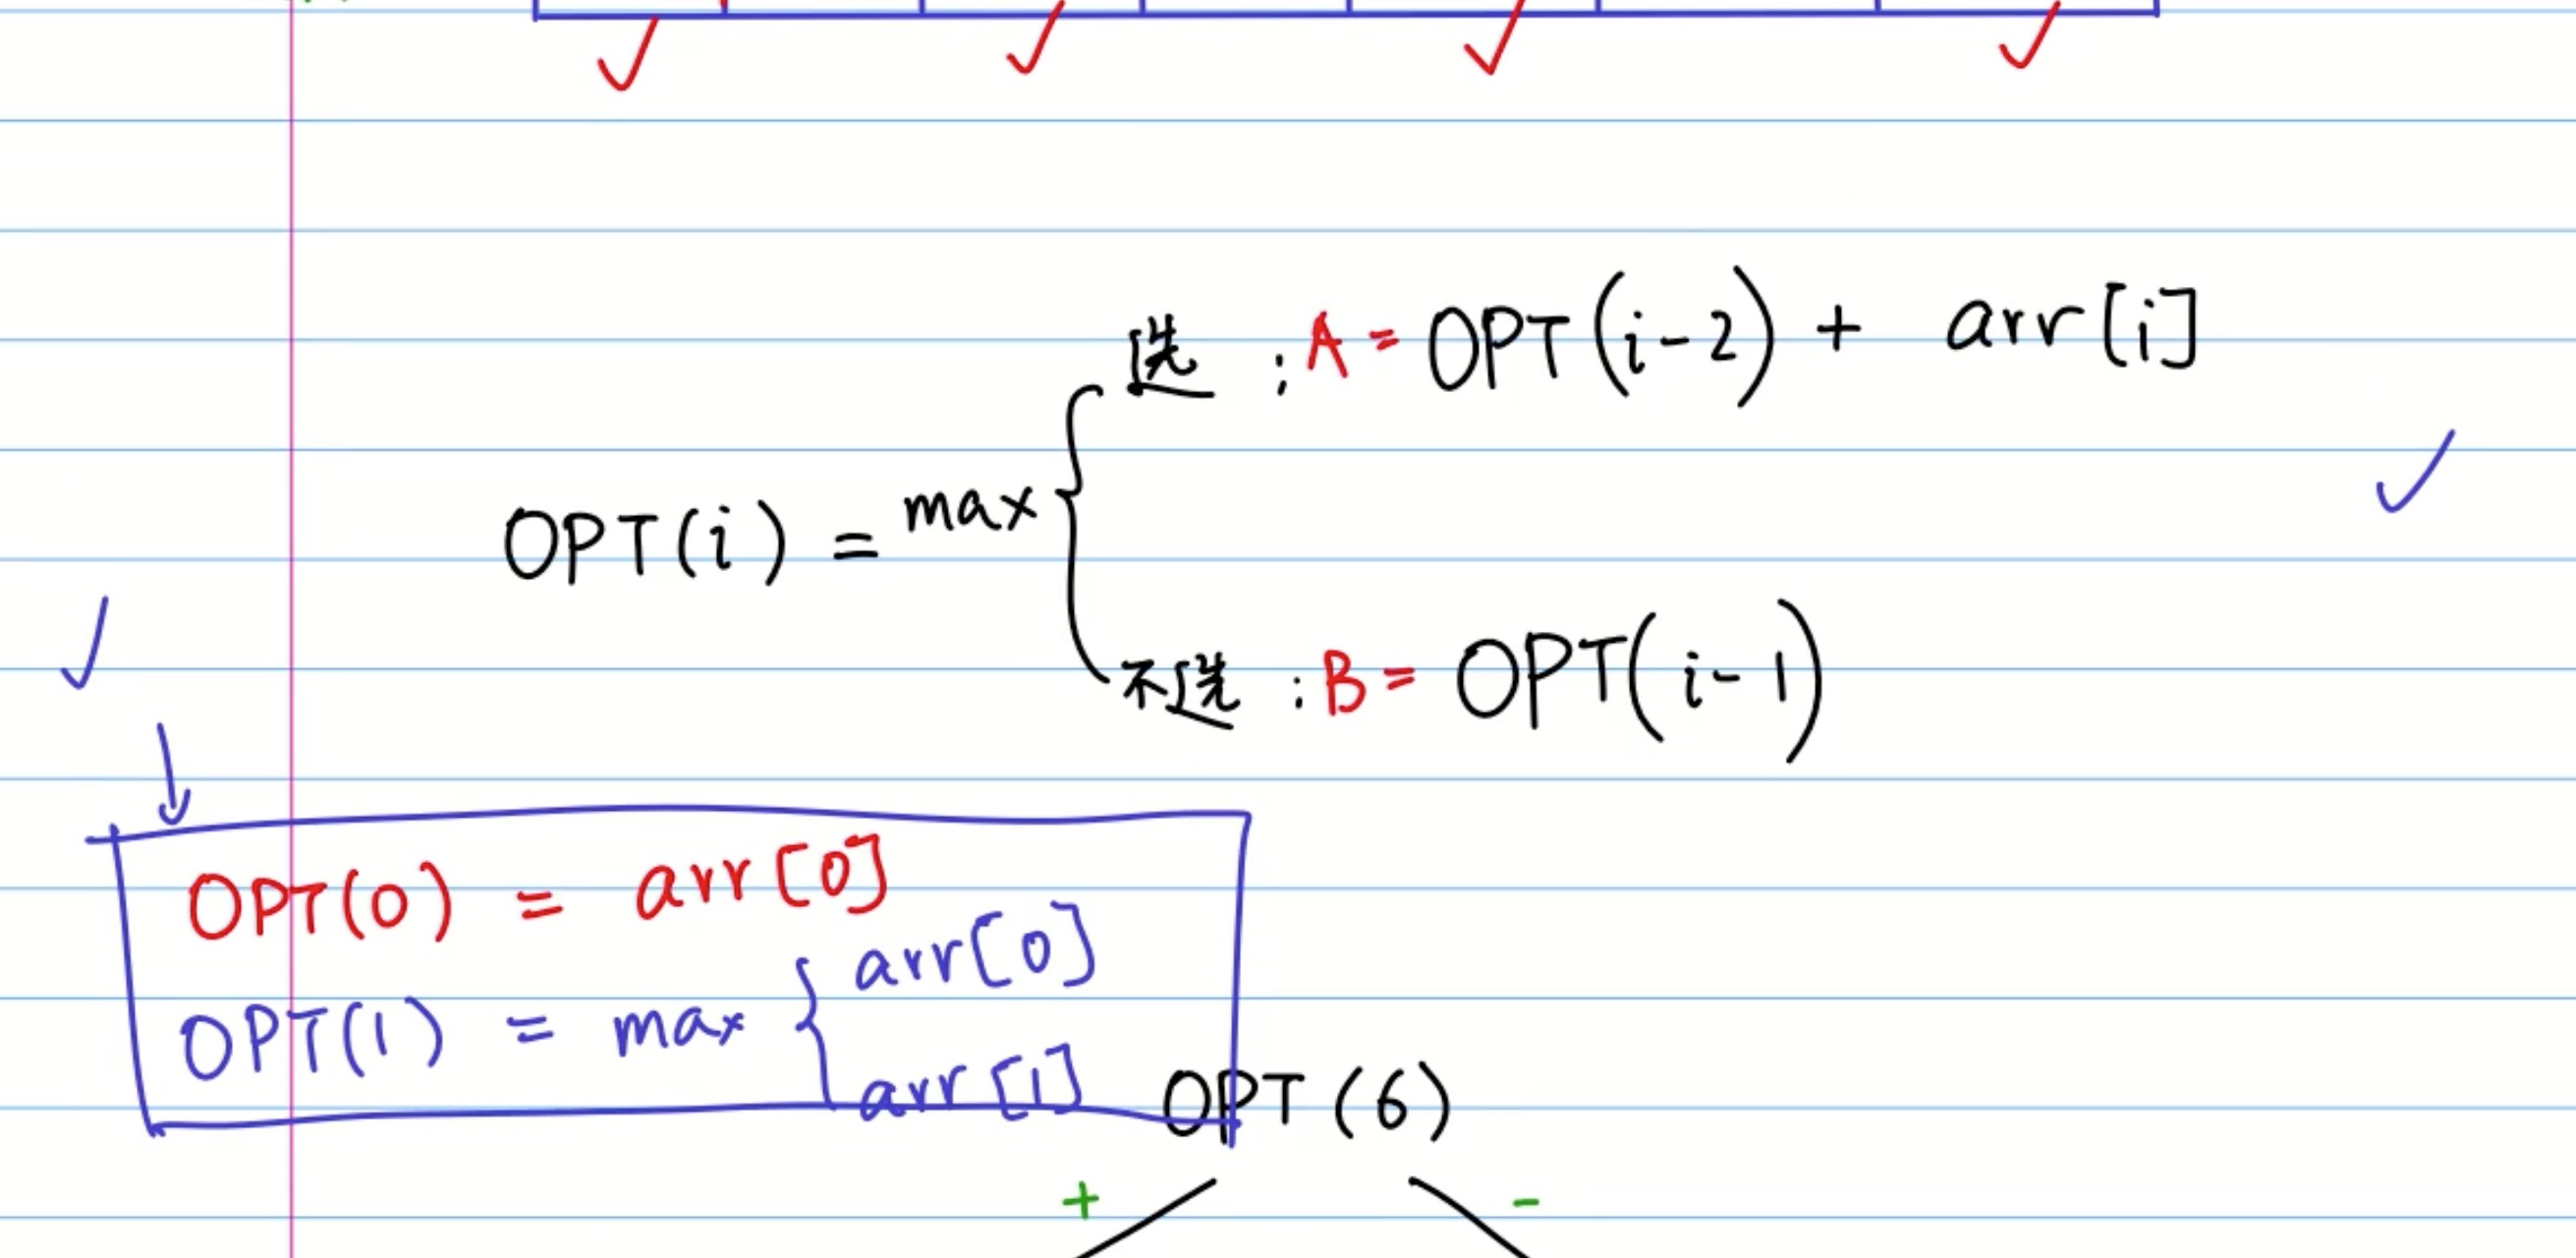 选 : A = OPT(i-2) + arr[i]
OPT(i) = max {
不选 : B = OPT(i-1)
OPT(0) = arr[0]
OPT(1) = max { arr[0]
arr[1]
OPT(6)
+ -